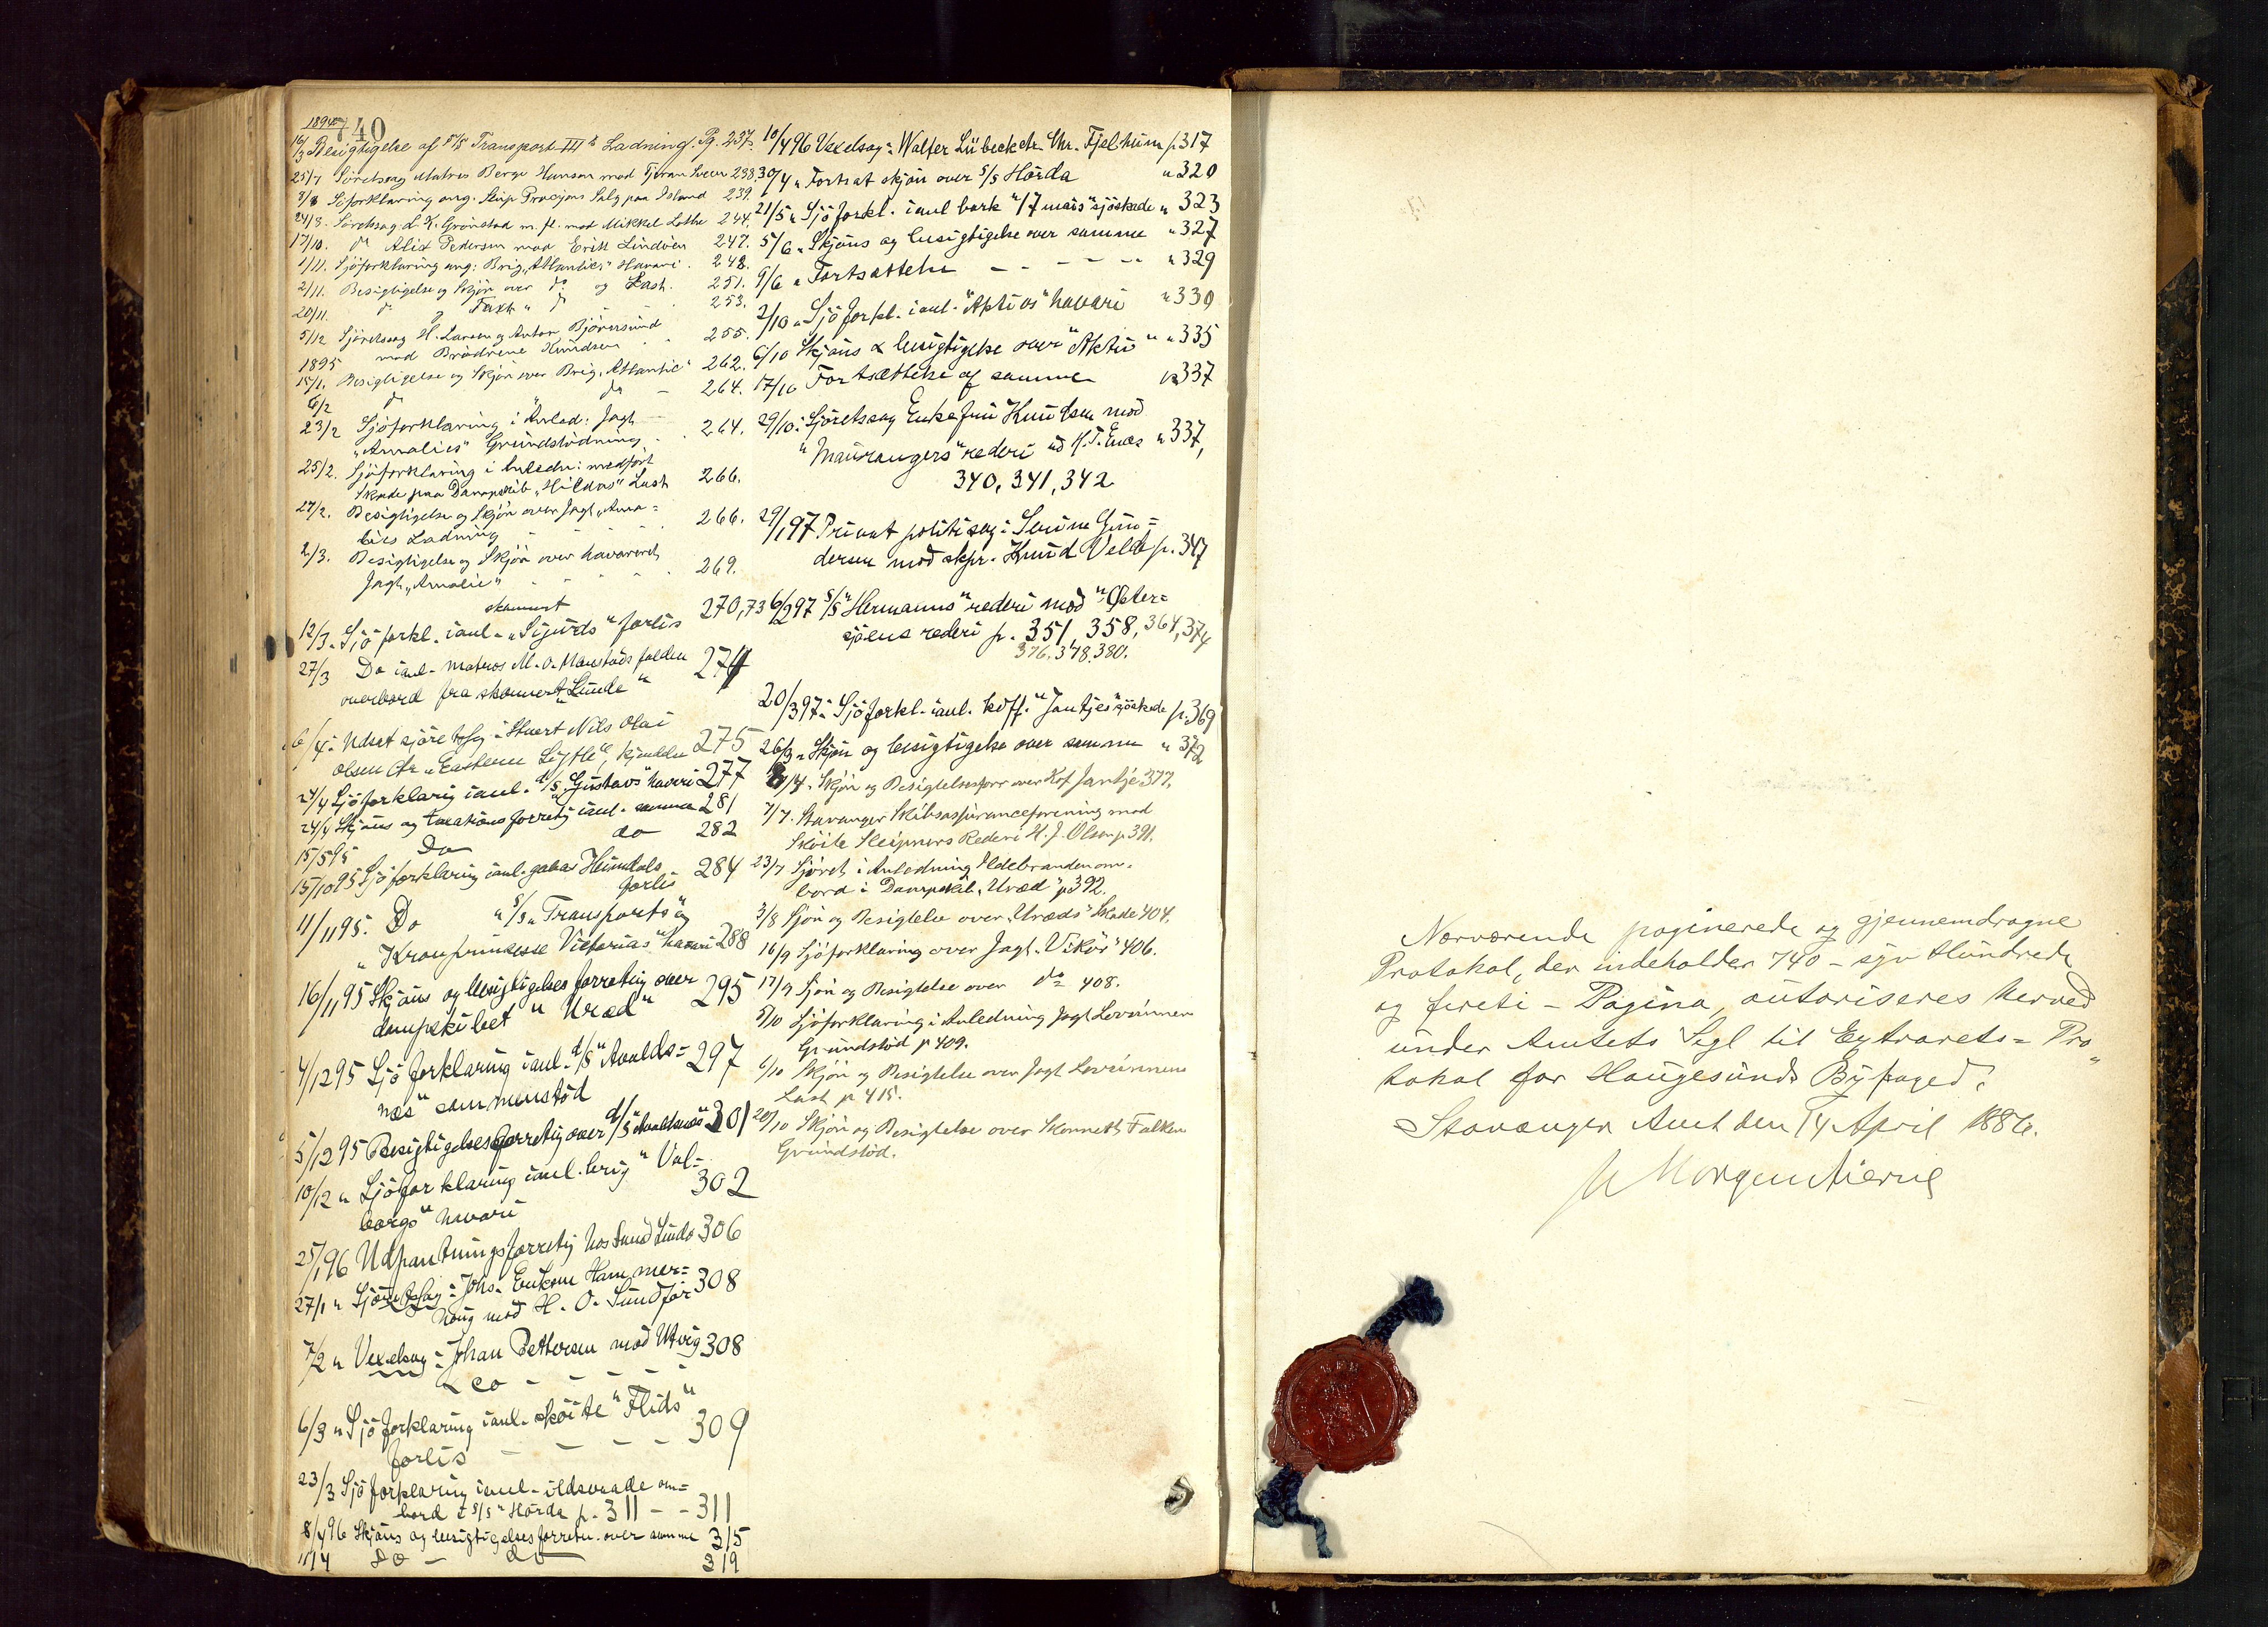 740
1894
16/3 Besigtigelse af S/S Transport III s Ladning. Pg. 237.
25/7 Søretssag Matros Berge Hansen mod Tjeran Sveen 238.
3/8 Søforklaring ang. Skip Procyons Salg paa Island 239.
24/8. Søretssag d. K. Grønstad m. fl. mod Mikkel Lothe 244.
17/10. do Alix Pedersen mod Erik Lindøen 247.
1/11. Sjøforklaring ang: Brig „Atlantics" Havari. 248.
2/11. Besigtigelse og Skjøn over do og Last. 251.
20/11. do og Taxt " do 253.
5/12 Sjøretssag H. Larsen og Anton Bjørersund
mod Brødrene Knudsen 255.
1895
15/1. Besigtigelse og Skjøn over Brig. Atlantic" 262.
6/2 do do 264.
23/2 Sjøforklaring i Anled: Jagt
„Amalies" Grundstødning 264.
25/2. Sjøforklaring i Anledn: medført
Skade paa Dampskib „Hildas" Last 266.
27/2. Besigtigelse og Skjøn over Jagt „Ama=
lies Ladning 266.
2/3. Besigtigelse og Skjøn over havareret
Jagt „Amalie" 269.
skonnert
12/3. Sjøforkl. ianl. „Sigurds" forlis 270,73
27/3 Do ianl. matros M. O. Manstads falden
overbord fra skonnert „Linde" 274
6/4. Udset sjøretssag: Stuert Nils Olai
Olsen ctr „Eastern Lyttle", kjendelse 275
24/4 Sjøforklaring ianl. d/s „Gustavs" havari 277
24/4 Skjøns og taxationsforretng ianl. samme 281
15/5 95 Do do 282
15/10 95 Sjøforklaring ianl. galeas Heimdals
forlis 284
11/11 95. Do " S/S „Transports" og
„Kronprindsesse Victorias" havari 288
16/11 95 Skjøns og besigtigelsesforretng over
dampskibet "Uræd" 295
4/12 95 Sjøforklaring ianl. d/s "Avalds=
næs" sammenstød 297
5/12 95 Besigtigelsesforretng over d/s "Avaldsnæs" 301
10/12 " Sjøforklaring ianl. brig "Val=
borgs" havari 302
25/1 96 Udpantningsforretng hos Knud Lindø 306
27/1 " Sjøretssag: Johs. Eriksen Hammer=
haug mod H. O. Sundfør 308
7/2 " Vexelsag: Johan Pettersen mod Utvig 308
& co - - - -
6/3 " Sjøforklaring ianl. skøite "Flids"
forlis - - - - 309
23/3 Sjøforklaring ianl. ildsvaade om=
bord i S/S "Hørda p. 311 - - 311
8/4 96 Skjøns og besigtigelsesforretn. over samme 315
18/4 do - do 319
10/4 96 Vexelsag: Walter Lübeck ctr. Chr. Fjelhum p. 317
30/4 " Fortsat skjøn over S/S Hørda " 320
21/5 " Sjøforkl. ianl bark "17 mais" sjøskade " 323
5/6 " Skjøns og besigtigelse over samme " 327
9/6 " Fortsættelse - - - - - " 329
2/10 " Sjøforkl. ianl. "Aktivs" havari " 330
6/10 Skjøns & besigtigelse over "Aktiv" " 335
17/10 Fortsættelse af samme " 337
29/10: Sjøretssag Enkefru Knudsen mod
"Maurangers" rederi ved K. T. Enes " 337,
340, 341, 342
29/1 97 Privat politisag: Serine Gun=
dersen mod skpr. Knud Velde p. 347
6/2 97 S/S "Hermanns" rederi mod "Øster=
sjøens rederi p. 351, 358, 364, 374
376. 378. 380.
20/3 97: Sjøforkl. ianl. koff. "Jantjes" sjøskade p. 369
26/3 " Skjøn og besigtigelse over samme " 372
/4. Skjøn og Besigtelsesforr over Kof Jantje 377.
7/7. Stavanger Skibsassuranceforening mod
Skøite Sleipners Rederi H. J. Olsen p 391.
23/7 Sjøret i Anledning Ildebranden om-
bord i Dampskib „Uræd" p 392.
3/8 Sjøn og Besigtelse over „Uræds" Skade 404.
16/9 Sjøforklaring over Jagt „Vikør" 406.
17/9 Sjøn og Besigtelse over do 408.
5/10 Sjøforklaring i Anledning Jagt Lovinnens
Grundstød p 409.
6/10 Skjøn og Besigtelse over Jagt Lovinnens
Last p 415.
20/10 Skjøn og Besigtelse over Skonnerts Falken
Grundstød.
Nærværende paginerede og gjennemdragne
Protokol, der indeholder 740 - syv Hundrede
og firti - Pagina, autoriseres herved
under Amtets Segl til Extrarets= Pro
tokol for Haugesunds Byfoged.
Stavanger Amt den 14 April 1886.
Morgenstierne